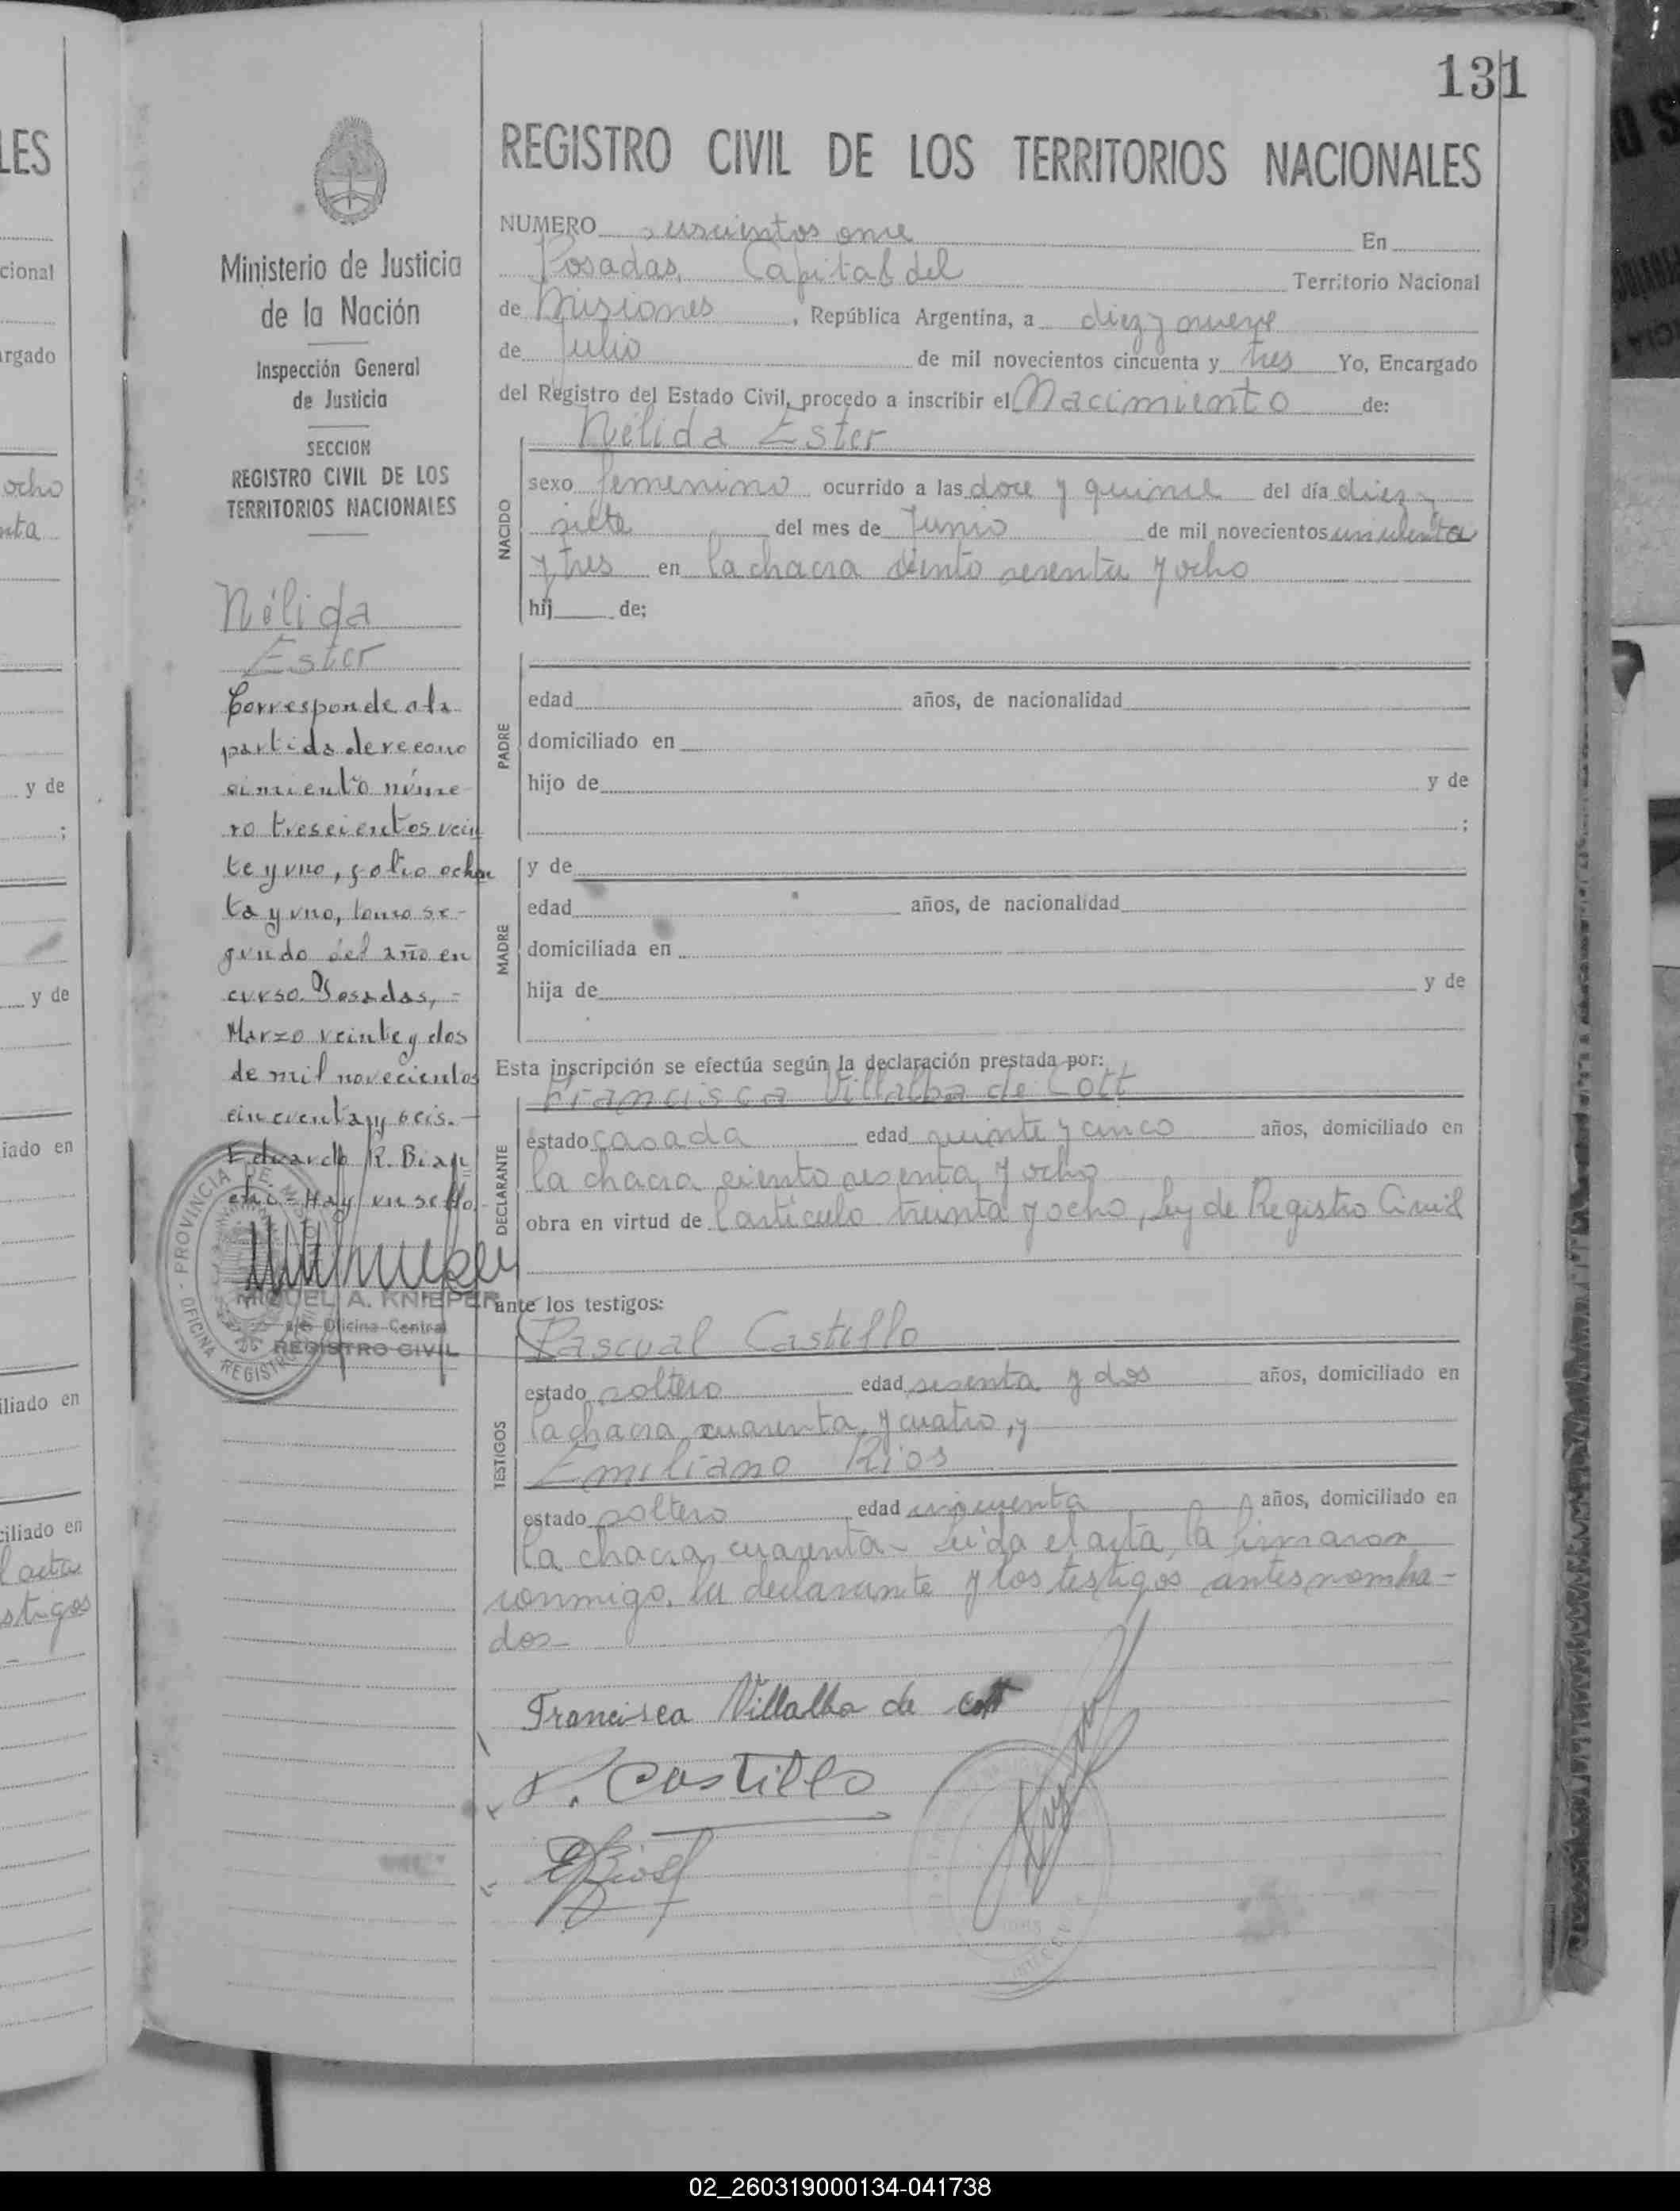 131
REGISTRO CIVIL DE LOS TERRITORIOS NACIONALES
Ministerio de Justicia
de la Nación
Inspección General
de Justicia
SECCION
REGISTRO CIVIL DE LOS
TERRITORIOS NACIONALES
Nélida
Ester
Corresponde a la
partida de recono
cimiento núme-
ro trescientos vein
te y uno, folio ochen
ta y uno, tomo se-
gundo del año en
curso. Posadas,-
Marzo veinte y dos
de mil novecientos
cincuenta y seis.-
Eduardo R. Bian
chi - Hay un sello.-
PROVINCIA DE
OFICINA REGISTRO
MIGUEL A. KNIEPER
Oficina Central
REGISTRO CIVIL
NUMERO once En
Posadas, Capital del Territorio Nacional
de Misiones, República Argentina, a diez y nueve
de Julio de mil novecientos cincuenta y tres Yo, Encargado
del Registro del Estado Civil, procedo a inscribir el Nacimiento de:
Nélida Ester
NACIDO
sexo femenino ocurrido a las doce y quince del día diez y
siete del mes de Junio de mil novecientos cincuenta
y tres en la chacra ciento sesenta y ocho
hij de;
PADRE
edad años, de nacionalidad
domiciliado en
hijo de y de
;
MADRE
y de
edad años, de nacionalidad
domiciliada en
hija de y de
Esta inscripción se efectúa según la declaración prestada por:
Francisca Villalba de Cott
DECLARANTE
estado casada edad veinte y cinco años, domiciliado en
la chacra ciento sesenta y ocho
obra en virtud de l artículo treinta y ocho, Ley de Registro Civil
ante los testigos:
Pascual Castillo
TESTIGOS
estado soltero edad sesenta y dos años, domiciliado en
la chacra cuarenta y cuatro, y
Emiliano Rios
estado soltero edad cincuenta años, domiciliado en
la chacra cuarenta- Leída el acta, la firmaron
conmigo, la declarante y los testigos antes nombra-
dos-
Francisca Villalba de Cott
P. Castillo
E Rios
LES
cional
argado
ocho
nta
y de
;
y de
iado en
iliado en
ciliado en
l acta
stigos
02_260319000134-041738